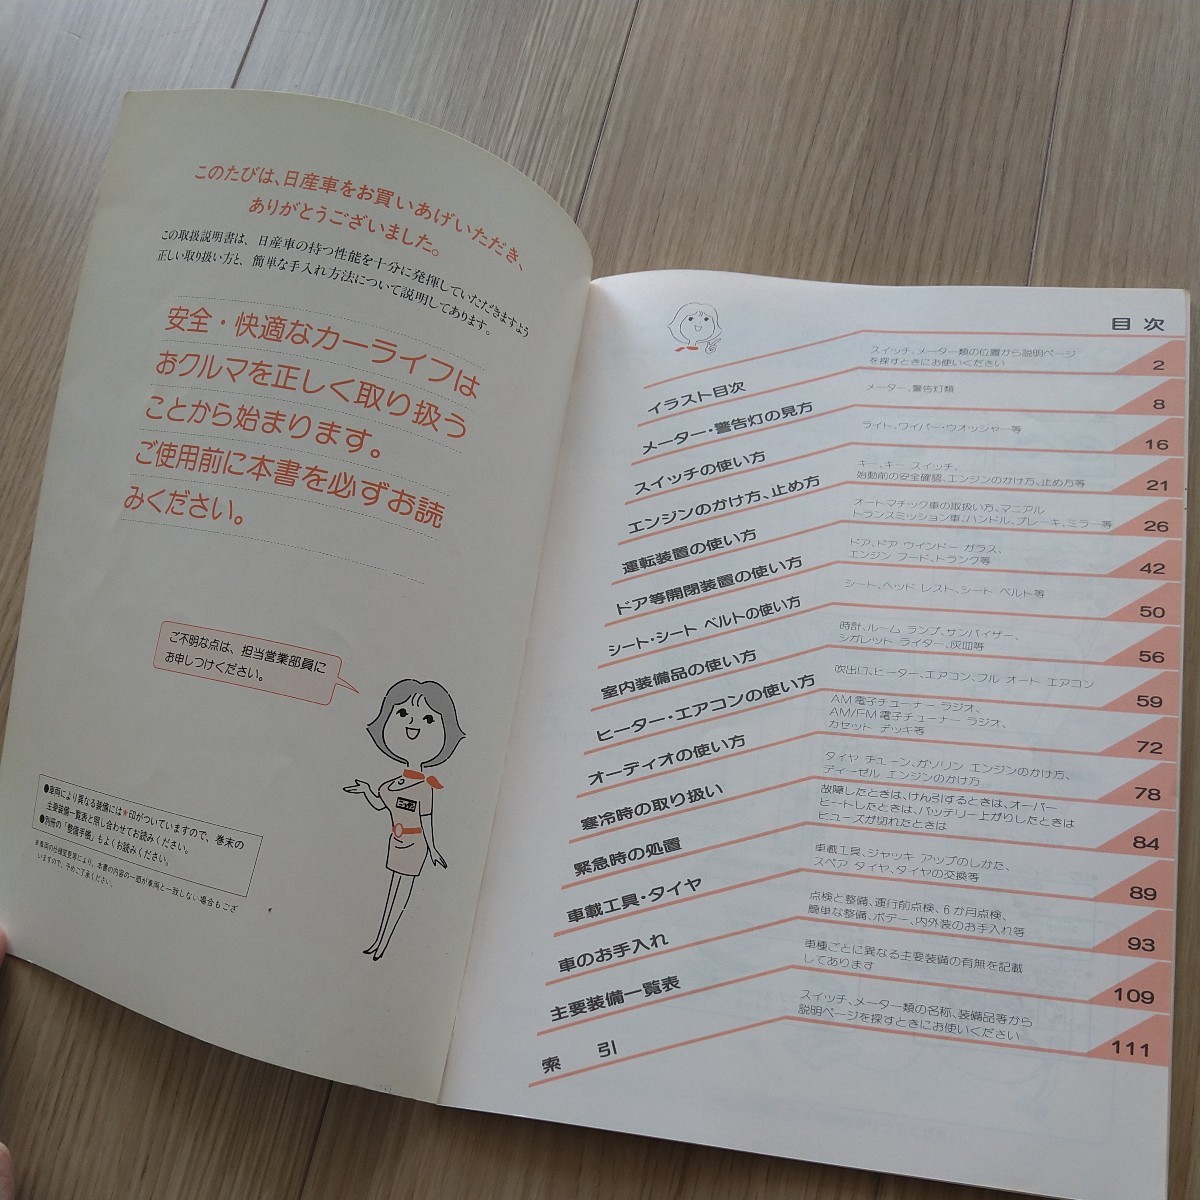 このたびは、日産車をお買いあげいただき、
ありがとうございました。
この取扱説明書は、日産車の持つ性能を十分に発揮していただきますよう
正しい取り扱い方と、簡単な手入れ方法について説明してあります。
安全・快適なカーライフは
おクルマを正しく取り扱う
ことから始まります。
ご使用前に本書を必ずお読
みください。
ご不明な点は、担当営業部員に
お申しつけください。
●車両により異なる装備には★印がついていますので、巻末の
主要装備一覧表と照し合わせてお読みください。
●別冊の「整備手帳」もよくお読みください。
※車両の仕様変更等により、本書の内容の一部が車両と一致しない場合もござ
いますので、予めご了承ください。
目次
イラスト目次
スイッチ、メーター類の位置から説明ページ
を探すときにお使いください
2
メーター・警告灯の見方
メーター、警告灯類
8
スイッチの使い方
ライト、ワイパー・ウオッシャー等
16
エンジンのかけ方、止め方
キー、キー スイッチ、
始動前の安全確認、エンジンのかけ方、止め方等
21
運転装置の使い方
オートマチック車の取扱い方、マニアル
トランスミッション車、ハンドル、ブレーキ、ミラー等
26
ドア等開閉装置の使い方
ドア、ドア ウインドー ガラス、
エンジン フード、トランク等
42
シート・シート ベルトの使い方
シート、ヘッド レスト、シート ベルト等
50
室内装備品の使い方
時計、ルーム ランプ、サンバイザー、
シガレット ライター、灰皿等
56
ヒーター・エアコンの使い方
吹出し口、ヒーター、エアコン、フル オート エアコン
59
オーディオの使い方
AM電子チューナー ラジオ、
AM/FM電子チューナー ラジオ、
カセット デッキ等
72
寒冷時の取り扱い
タイヤ チェーン、ガソリン エンジンのかけ方、
ディーゼル エンジンのかけ方
78
緊急時の処置
故障したときは、けん引するときは、オーバー
ヒートしたときは、バッテリー上がりしたときは
ヒューズが切れたときは
84
車載工具・タイヤ
車載工具、ジャッキ アップのしかた、
スペア タイヤ、タイヤの交換等
89
車のお手入れ
点検と整備、運行前点検、6か月点検、
簡単な整備、ボデー、内外装のお手入れ等
93
主要装備一覧表
車種ごとに異なる主要装備の有無を記載
してあります
109
索 引
スイッチ、メーター類の名称、装備品等から
説明ページを探すときにお使いください
111